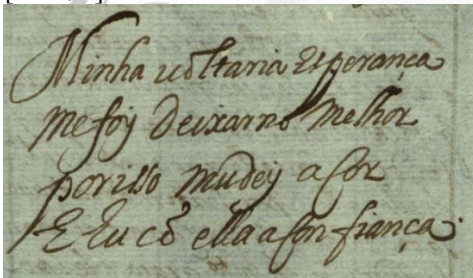 Minha uoltaria Esperança
me foy Deixar no melhor
por isso mudey a Cor
E Eu cõ ella a Confiança.